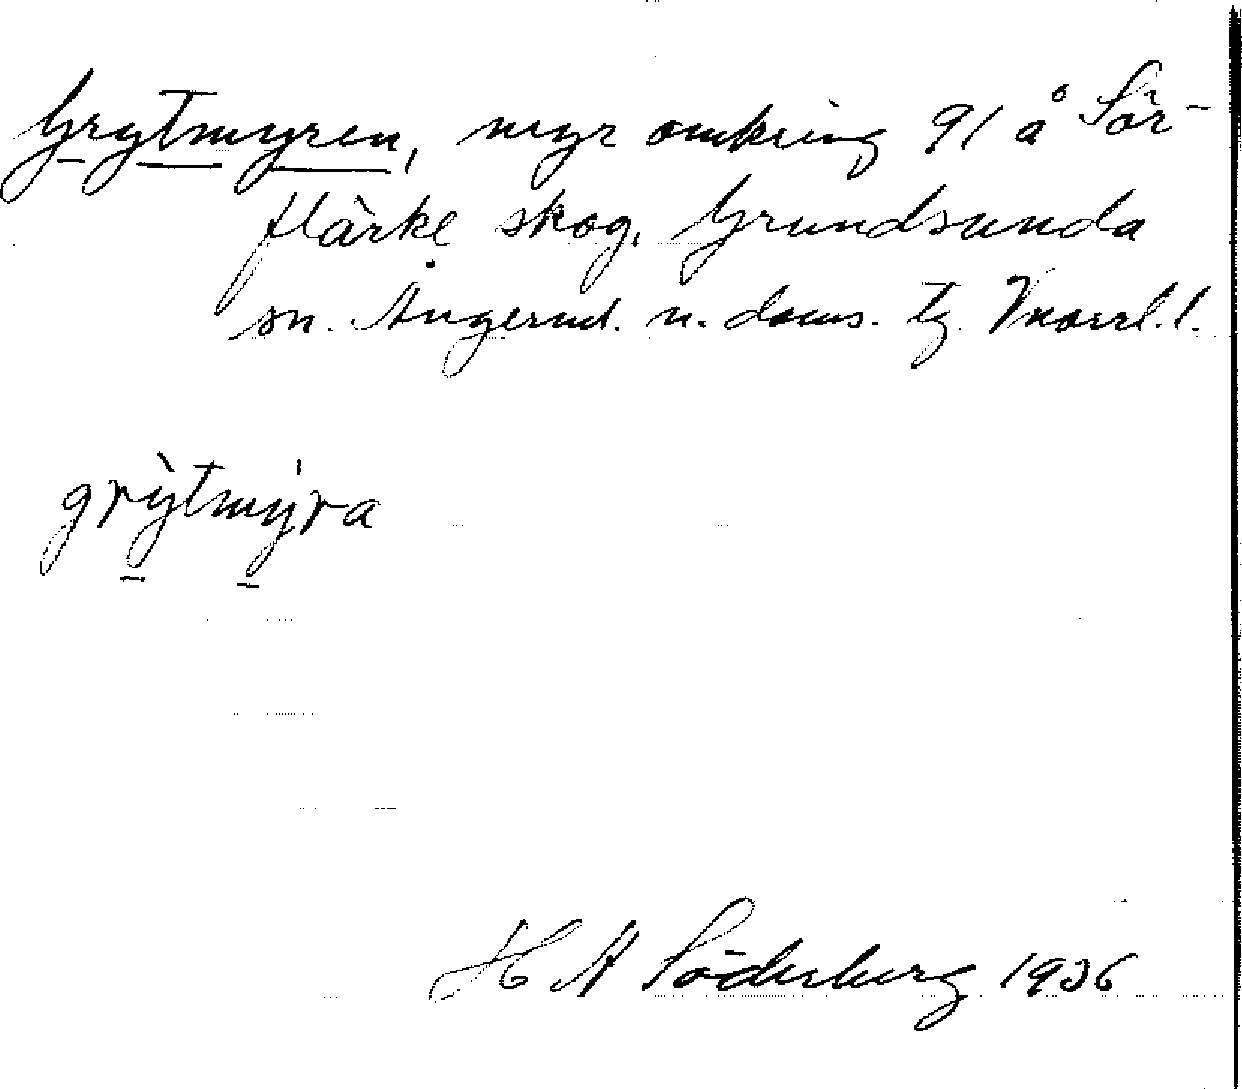 Grytmyren, myr omkring 91 å Sör-
flärke skog, Grundsunda
sn. Ångerml. n. doms. tg. Vnorrl. l.
grỳtmýra
H A Söderberg 1936